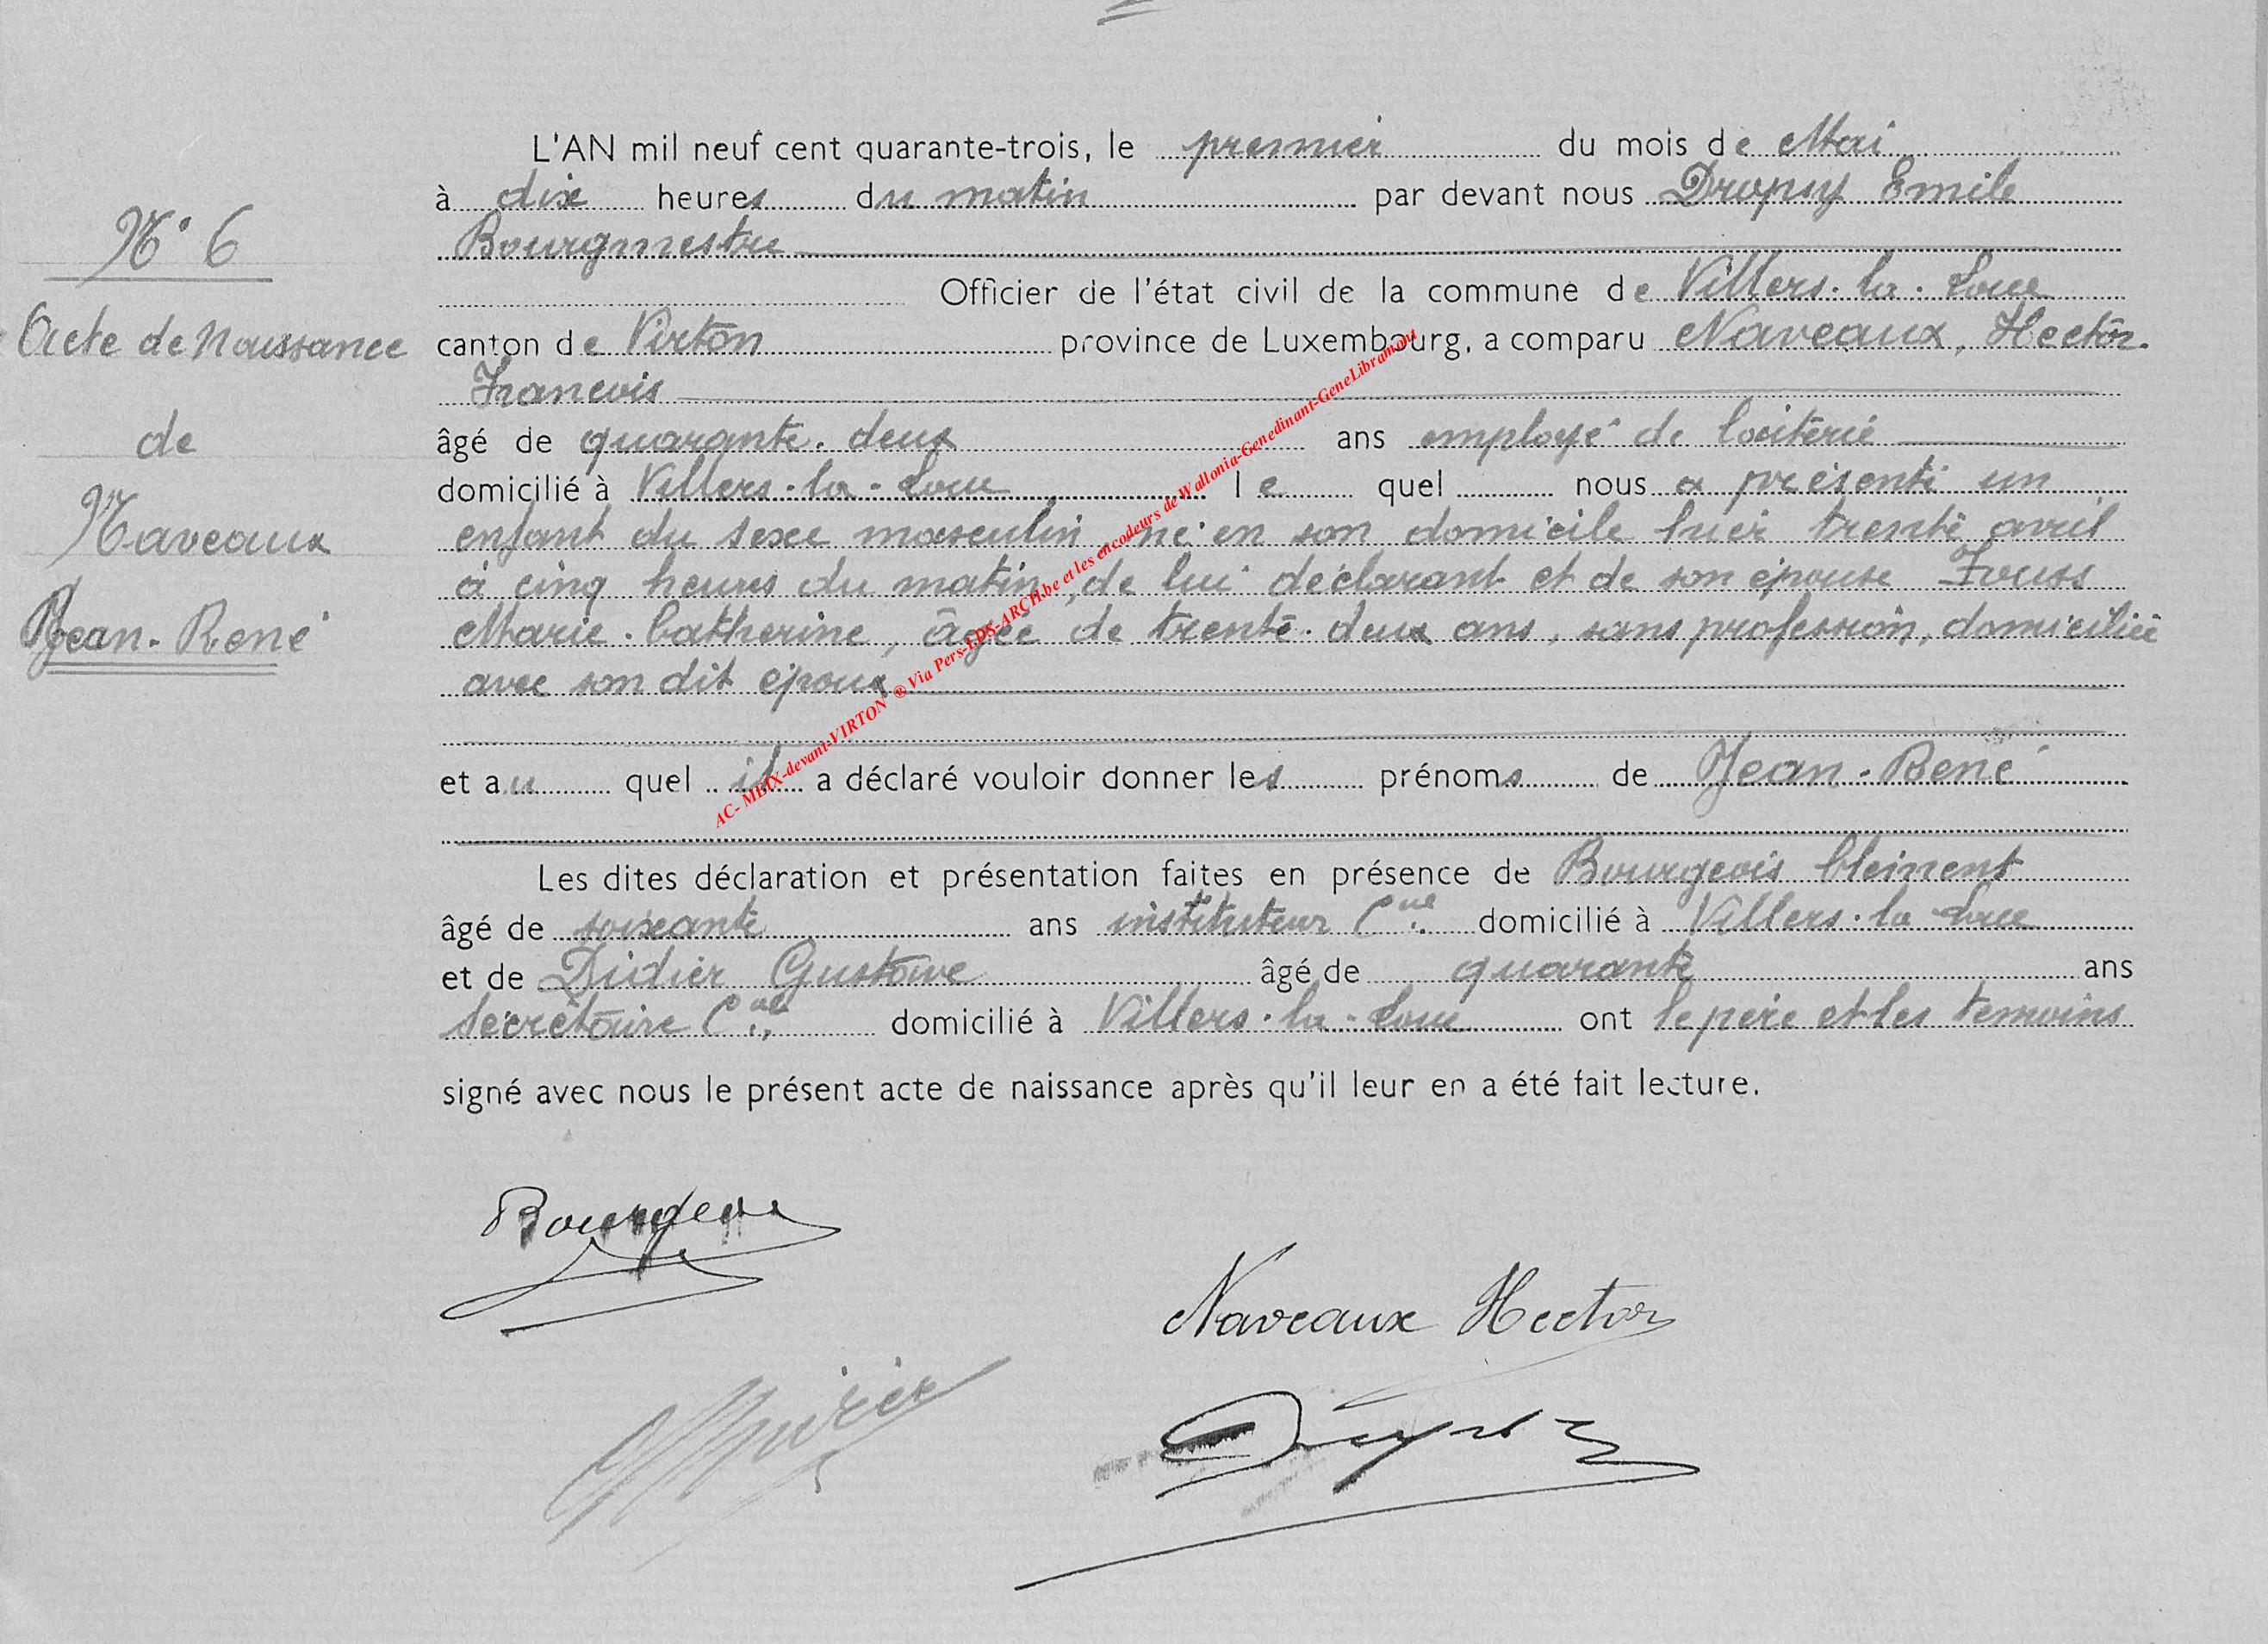 N° 6
Acte de Naissance
de
Naveaux
Jean-René
L'AN mil neuf cent quarante-trois, le premier du mois de Mai
à dix heures du matin par devant nous Dropsy Emile
Bourgmestre
Officier de l'état civil de la commune de Villers-la-Loue
canton de Virton province de Luxembourg, a comparu Naveaux, Hector-
François
âgé de quarante-deux ans employé de laiterie
domicilié à Villers-la-Loue lequel nous a présenté un
enfant du sexe masculin, né en son domicile hier trente avril
à cinq heures du matin, de lui déclarant et de son épouse Fouss
Marie-Catherine, âgée de trente-deux ans, sans profession, domiciliée
avec son dit époux
et au quel il a déclaré vouloir donner les prénoms de Jean-René
Les dites déclaration et présentation faites en présence de Bourgeois Clément
âgé de soixante ans instituteur Cnal domicilié à Villers-la-Loue
et de Didier Gustave âgé de quarante ans
secrétaire Cnal domicilié à Villers-la-Loue ont le père et les témoins
signé avec nous le présent acte de naissance après qu'il leur en a été fait lecture.
Bourgeois
Naveaux Hector
GDidier
Dropsy
AC- MEIX-devant-VIRTON ® Via Pers-EPS-ARCH.be et les encodeurs de Wallonia-Genedinant-GeneLibramont